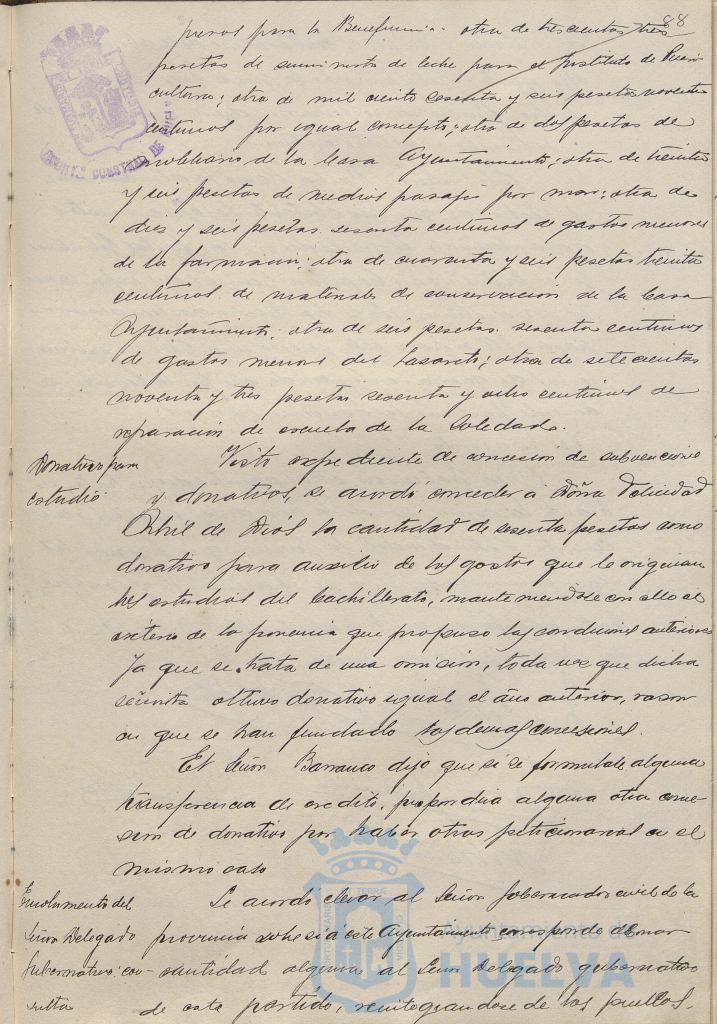 88
presos para la Beneficencia. otra de trescientas tres
pesetas de suministro de leche para el Instituto de Pueri
cultura; otra de mil ciento sesenta y seis pesetas noventa
centimos por igual concepto; otra de dos pesetas de
mobiliario de la Casa Ayuntamiento; otra de treinta
y seis pesetas de medios pasajes por mar; otra de
diez y seis pesetas sesenta centimos de gastos menores
de la farmacia; otra de cuarenta y seis pesetas treinta
centimos de materiales de conservación de la Casa
Ayuntamiento, otra de seis pesetas. sesenta centimos
de gastos menores del Lazareto; otra de setecientas
noventa y tres pesetas sesenta y ocho centimos de
reparación de escuela de la Soledad.
Donativo para
estudio
Visto expediente de concesión de subvenciones
y donativos, se acordó conceder a Doña Felicidad
de Diós la cantidad de sesenta pesetas como
donativo para auxilio de los gastos que le originan
los estudios del Bachillerato, manteniendose con ello el
criterio de la ponencia que propuso las condiciones anteriores
Ya que se trata de una omisión, toda vez que dicha
señorita obtuvo donativo igual el año anterior, razon
en que se han fundado las demas concesiones.
El Señor Barranco dijo que si se formulase alguna
transferencia de credito, propondria alguna otra conce-
sión de donativo por haber otras peticionarias en el
mismo caso
Emolumento del
Señor Delegado
Gubernativo: con-
sulta
Se acordó elevar al Señor Gobernador civil de la
provincia sobre si á este Ayuntamiento corresponde abonar
cantidad alguna al Señor Delegado gubernativo
de este partido, reintegrandose de los pueblos.
Ayuntamiento de
HUELVA